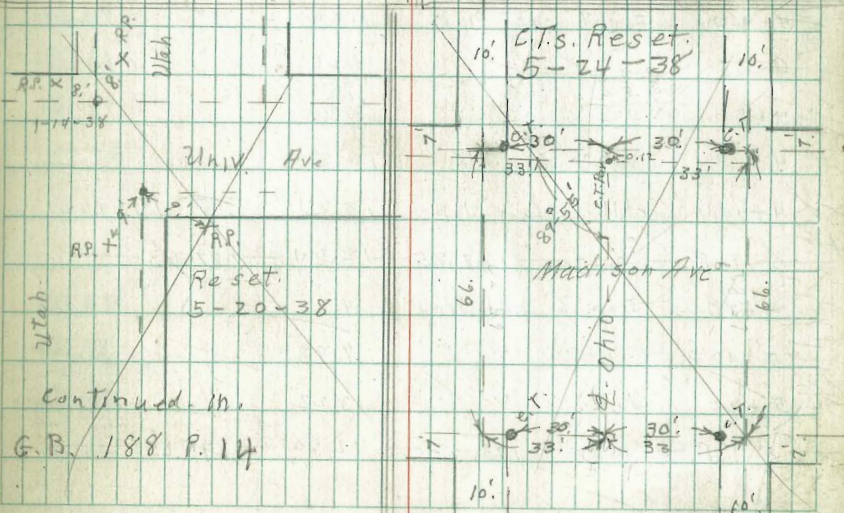 R.P. X 8'
8' X R.P.
Utah
1-14-38
Univ. Ave
9'
R.P.
R.P.
Reset.
5-20-38
Utah
Continued in.
G.B. 188 P. 14
C.T.s. Reset.
5-24-38
10'
10'
7'
C.T.
30'
30'
C.T.
7'
33'
0.12
33'
89°-55'
Madison Ave
66.
66.
℄ Ohio
C.T.
30'
30'
C.T.
7'
33'
33
7'
10'
10'